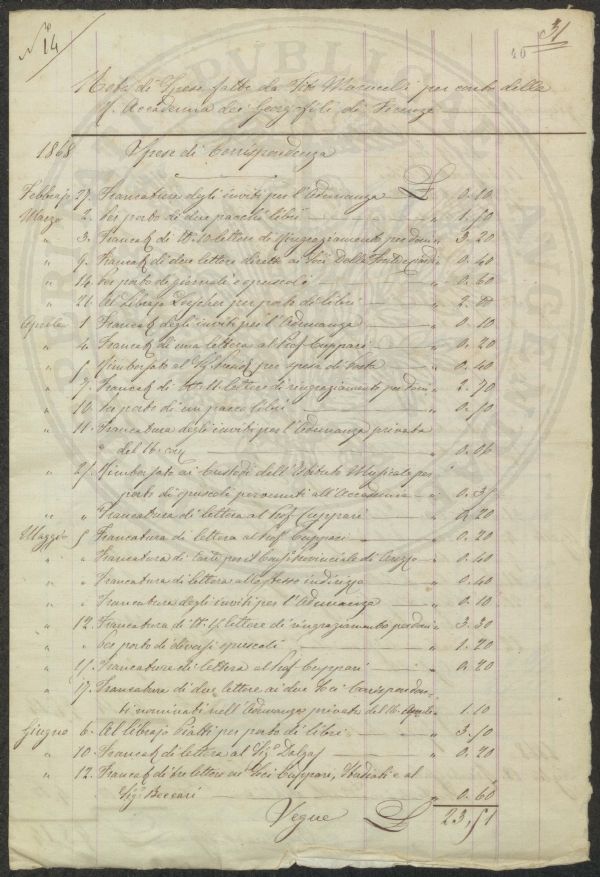 N.º 14
31
20
Nota di Spese fatte da Vito Marucelli per conto della
R. Accademia dei Georgofili di Firenze
1868 Spese di Corrispondenza
Febbrajo 27. Francatura degli inviti per l'Adunanza £ 0.10
Marzo 2. Per porto di due pacchi libri " 1.50
" 3. Francat. di N. 10 lettere di ringraziamento per doni " 3.20
" 9. Francat. di due lettere dirette ai Soci Della " 0.40
" 14. Per porto di giornali e opuscoli " 0.60
" 26. Al Librajo Loescher per porto di libri " 2.
Aprile 1 Francat. degli inviti per l'Adunanza " 0.10
" 4. Francat. di una lettera al Prof. Cuppari " 0.20
" 5 Rimborsato al Sig. per spese di Posta " 0.40
" 7. Francat. di N. 11 lettere di ringraziamento per doni " 2.70
" 10. Per porto di un pacco libri " 0.50
" 11. Francatura degli inviti per l'Adunanza privata
del 16. cor. " 0.06
" 25. Rimborsato ai Custodi dell'Istituto Musicale per
porto di opuscoli pervenuti all'Accademia " 0.35
" " Francatura di lettera al Prof. Cuppari " 0.20
Maggio 5 Francatura di lettera al Prof. Cuppari " 0.20
" " Francatura di Carte per il Cons. Provinciale di Arezzo " 0.40
" " Francatura di lettera allo stesso indirizzo " 0.40
" " Francatura degli inviti per l'Adunanza " 0.10
" 12. Francatura di N. 15. lettere di ringraziamento per doni " 3.30
" " Per porto di diversi opuscoli " 1.20
" 15. Francatura di lettera al Prof. Cuppari " 0.20
" 17. Francatura di due lettere ai due Soci Corrisponden-
ti nominati nell'Adunanza privata del 16 Aprile " 1.10
Giugno 6. Al librajo Piatti per porto di libri " 3.50
" 10. Francat. di lettera al Sig.r Dalgas " 0.20
" 12. Francat. di tre lettere ai Soci Cuppari, Studiati e al
Sig.r Beccari " 0.60
Segue £ 23,51